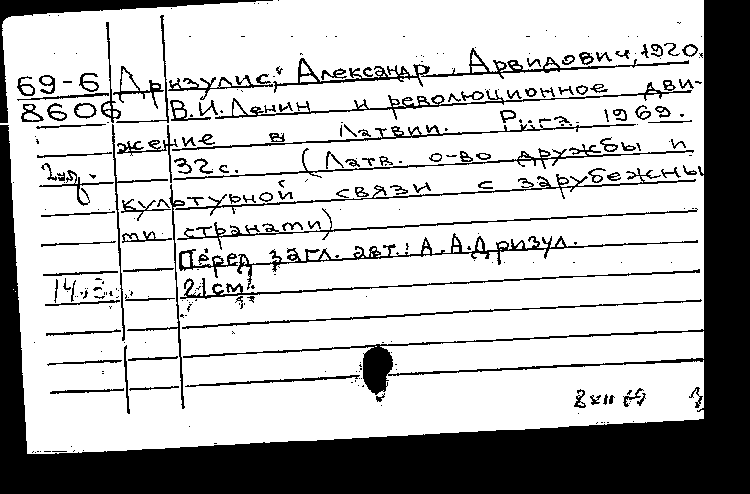 69-6 Дризулис, Александр Арвидович, 1920.
8606 В.И. Ленин и революционное дви-
жение в Латвии. Рига, 1969.
32 с. (Латв. о-во дружбы и
культурной связи с зарубежны
ми странами)
Перед загл. авт.: А.А. Дризул.
21 см.
8 XII 69